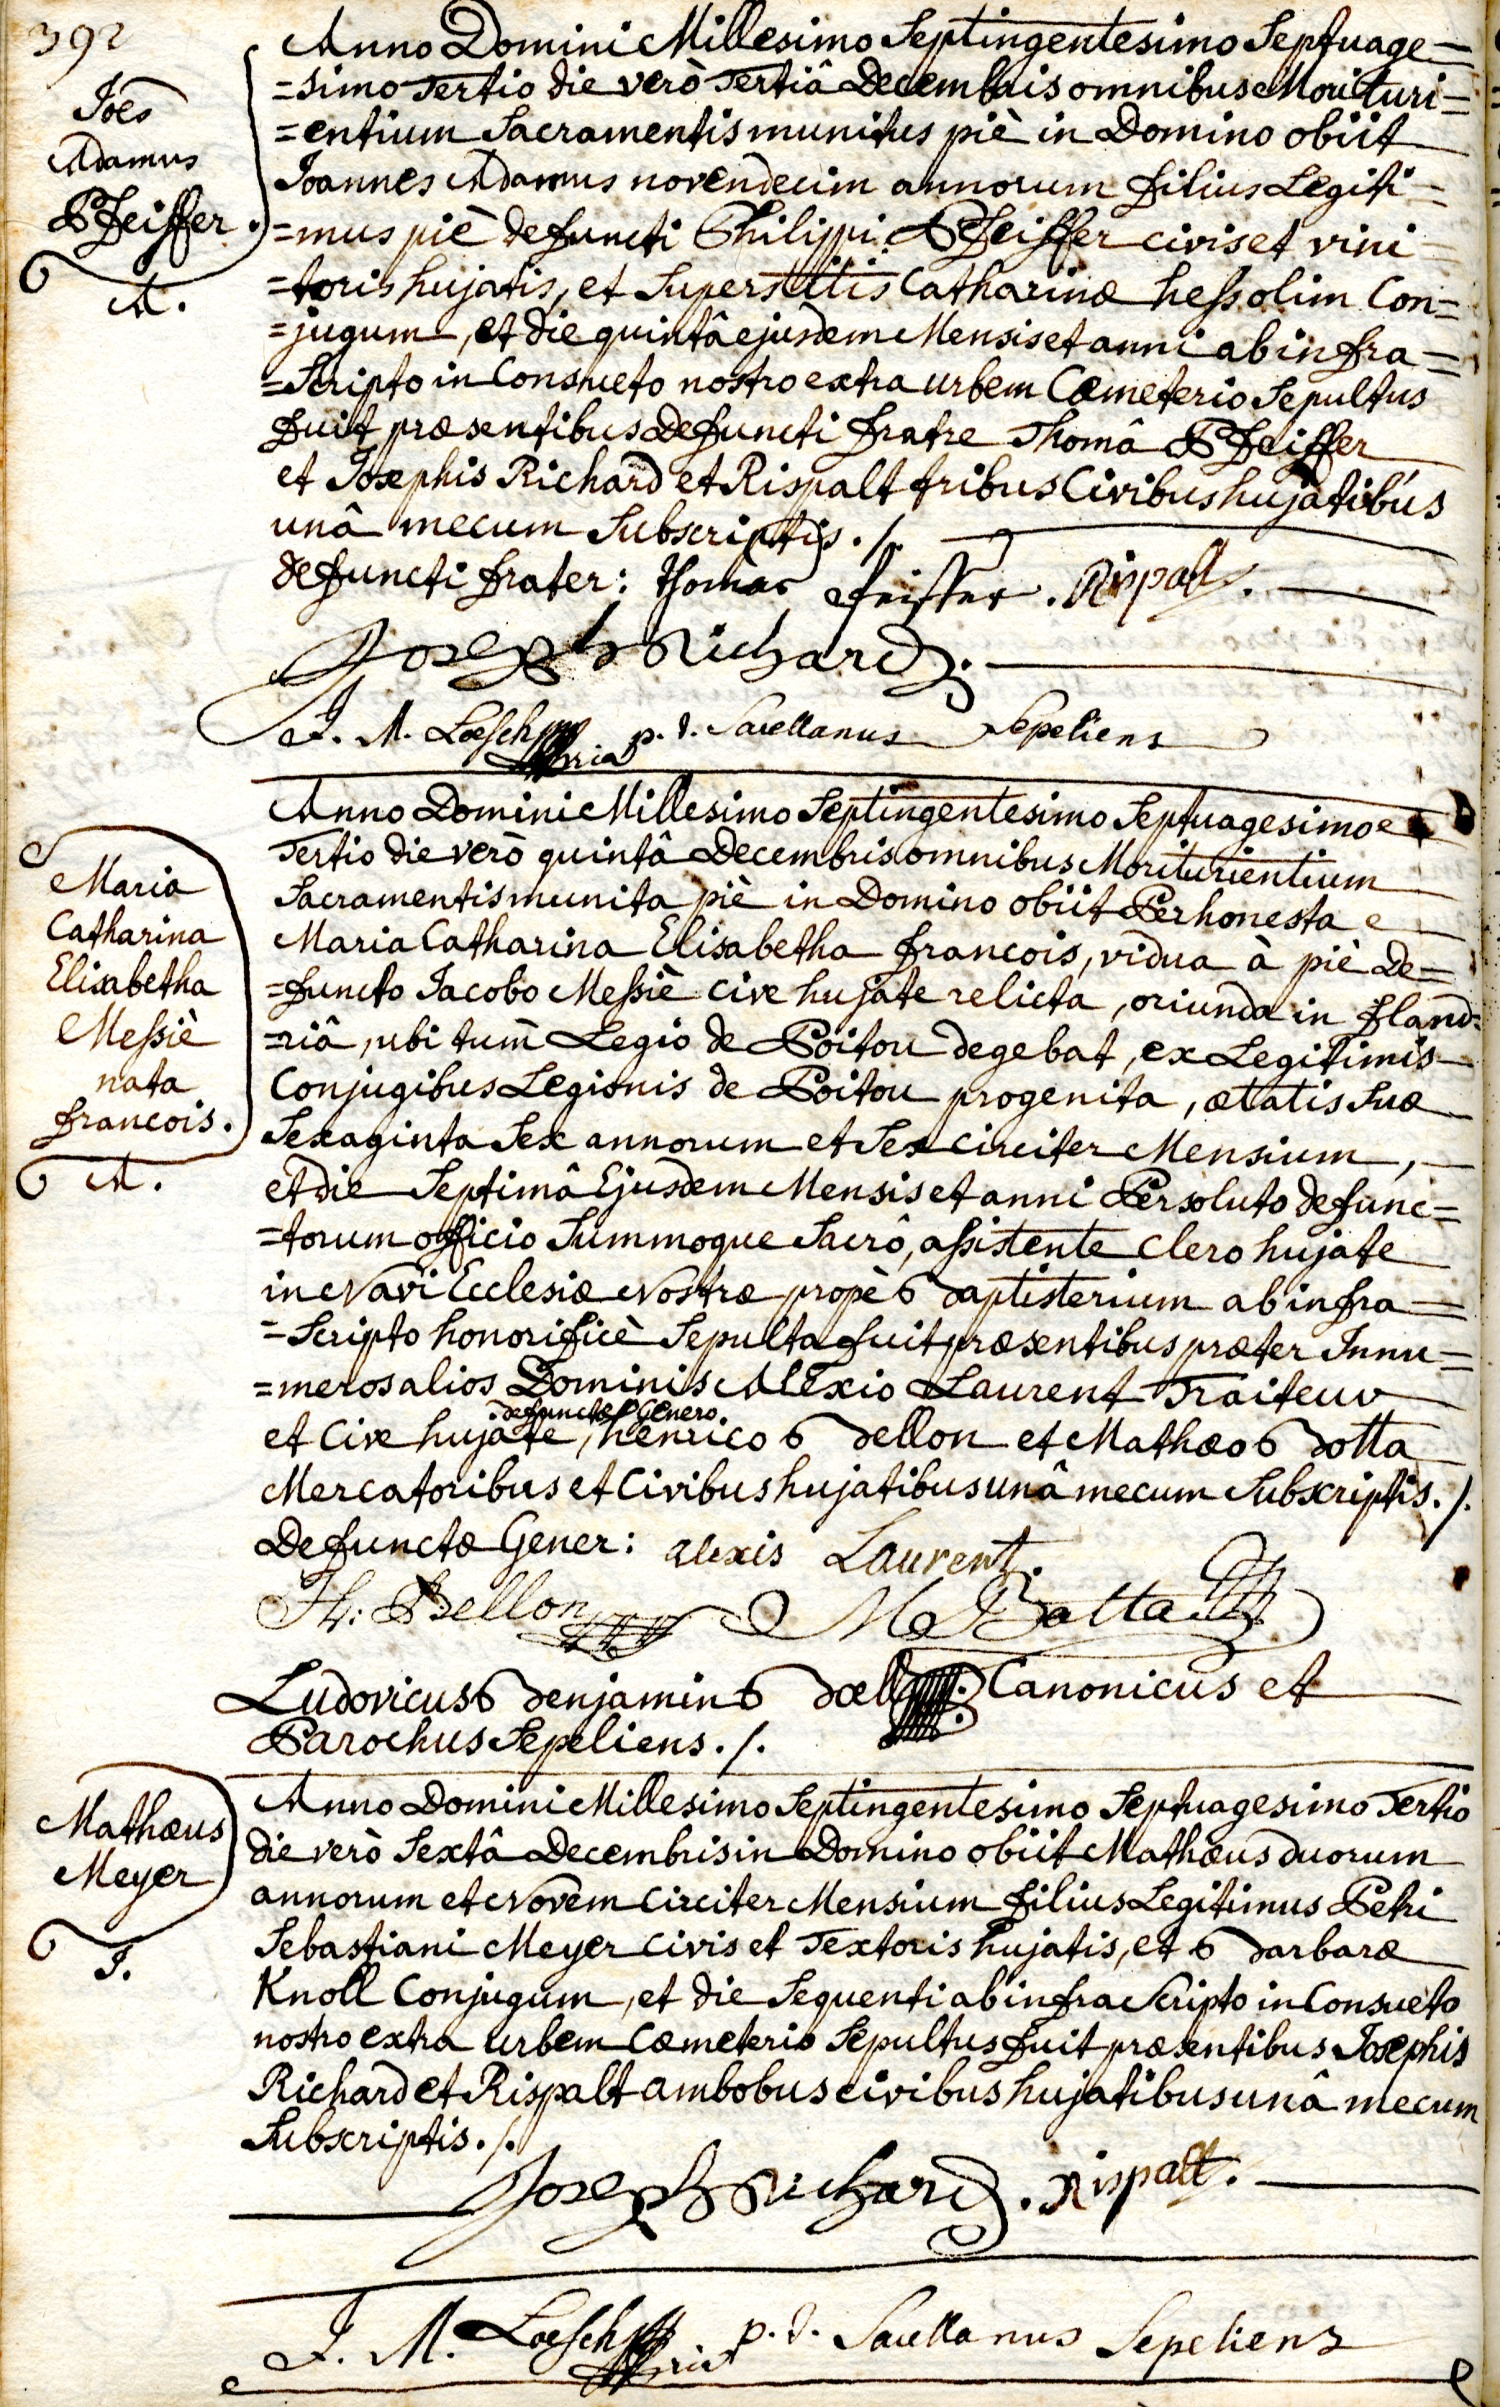 392
Joēs
Adamus
Pfeiffer.
A.
Anno Domini Millesimo Septingentesimo Septuage=
=simo Tertio die verò Tertiâ Decembris omnibus Morituri=
=entium Sacramentis munitus piè in Domino obiit
Joannes Adamus novendecim annorum filius Legiti=
=mus piè defuncti Philippi Pfeiffer civis et vini=
=toris hujatis, et Superstitis Catharinæ hess olim Con=
=jugum, et die quintâ ejusdem Mensis et anni ab infra=
=Scripto in Consueto nostro extra urbem Cœmeterio Sepultus
fuit præsentibus defuncti fratre Thomâ Pfeiffer
et Josephis Richard et Rispalt tribus Civibus hujatibus
unâ mecum Subscriptis./.
defuncti frater: thomas Pfeiffer. Rispalt.
Joseph Richard.
J. M. Loesch p. t. Sacellanus Sepeliens
Maria
Catharina
Elisabetha
Messiè
nata
francois.
A.
Anno Domini Millesimo Septingentesimo Septuagesimo
Tertio die verò quintâ Decembris omnibus Moriturientium
Sacramentis munita piè in Domino obiit Perhonesta
Maria Catharina Elisabetha francois, vidua à piè de=
=functo Jacobo Messiè cive hujate relicta, oriunda in fland=
=riâ, ubi tum Legio de Poitou degebat, ex Legitimis
Conjugibus Legionis de Poitou progenita, ætatis Suæ
Sexaginta Sex annorum et Sex circiter Mensium,
et die Septimâ Ejusdem Mensis et anni Persoluto defunc=
=torum officio Summoque Sacrô, assistente Clero hujate
in Navi Ecclesiæ Nostræ propè Baptisterium ab infra=
=Scripto honorificè Sepulta fuit præsentibus præter Innu=
=meros alios Dominis Alexio Laurent Traiteur
defunctæ Genero.
et Cive hujate, henrico Bellon et Mathæo Botta
Mercatoribus et Civibus hujatibus unâ mecum Subscriptis./.
Defunctæ Gener: alexis Laurent.
H: Bellon M Botta
Ludovicus Benjamin Bœll Canonicus et
Parochus Sepeliens./.
Mathæus
Meyer
J.
Anno Domini Millesimo Septingentesimo Septuagesimo Tertio
die verò Sextâ Decembris in Domino obiit Mathæus duorum
annorum et Novem Circiter Mensium filius Legitimus Petri
Sebastiani Meyer Civis et Textoris hujatis, et Barbaræ
Knoll Conjugum, et die Sequenti ab infra Scripto in Consueto
nostro extra urbem Cœmeterio Sepultus fuit præsentibus Josephis
Richard et Rispalt ambobus civibus hujatibus unâ mecum
Subscriptis./.
Joseph Richard. Rispalt.
J. M. Loesch p. t. Sacellanus Sepeliens